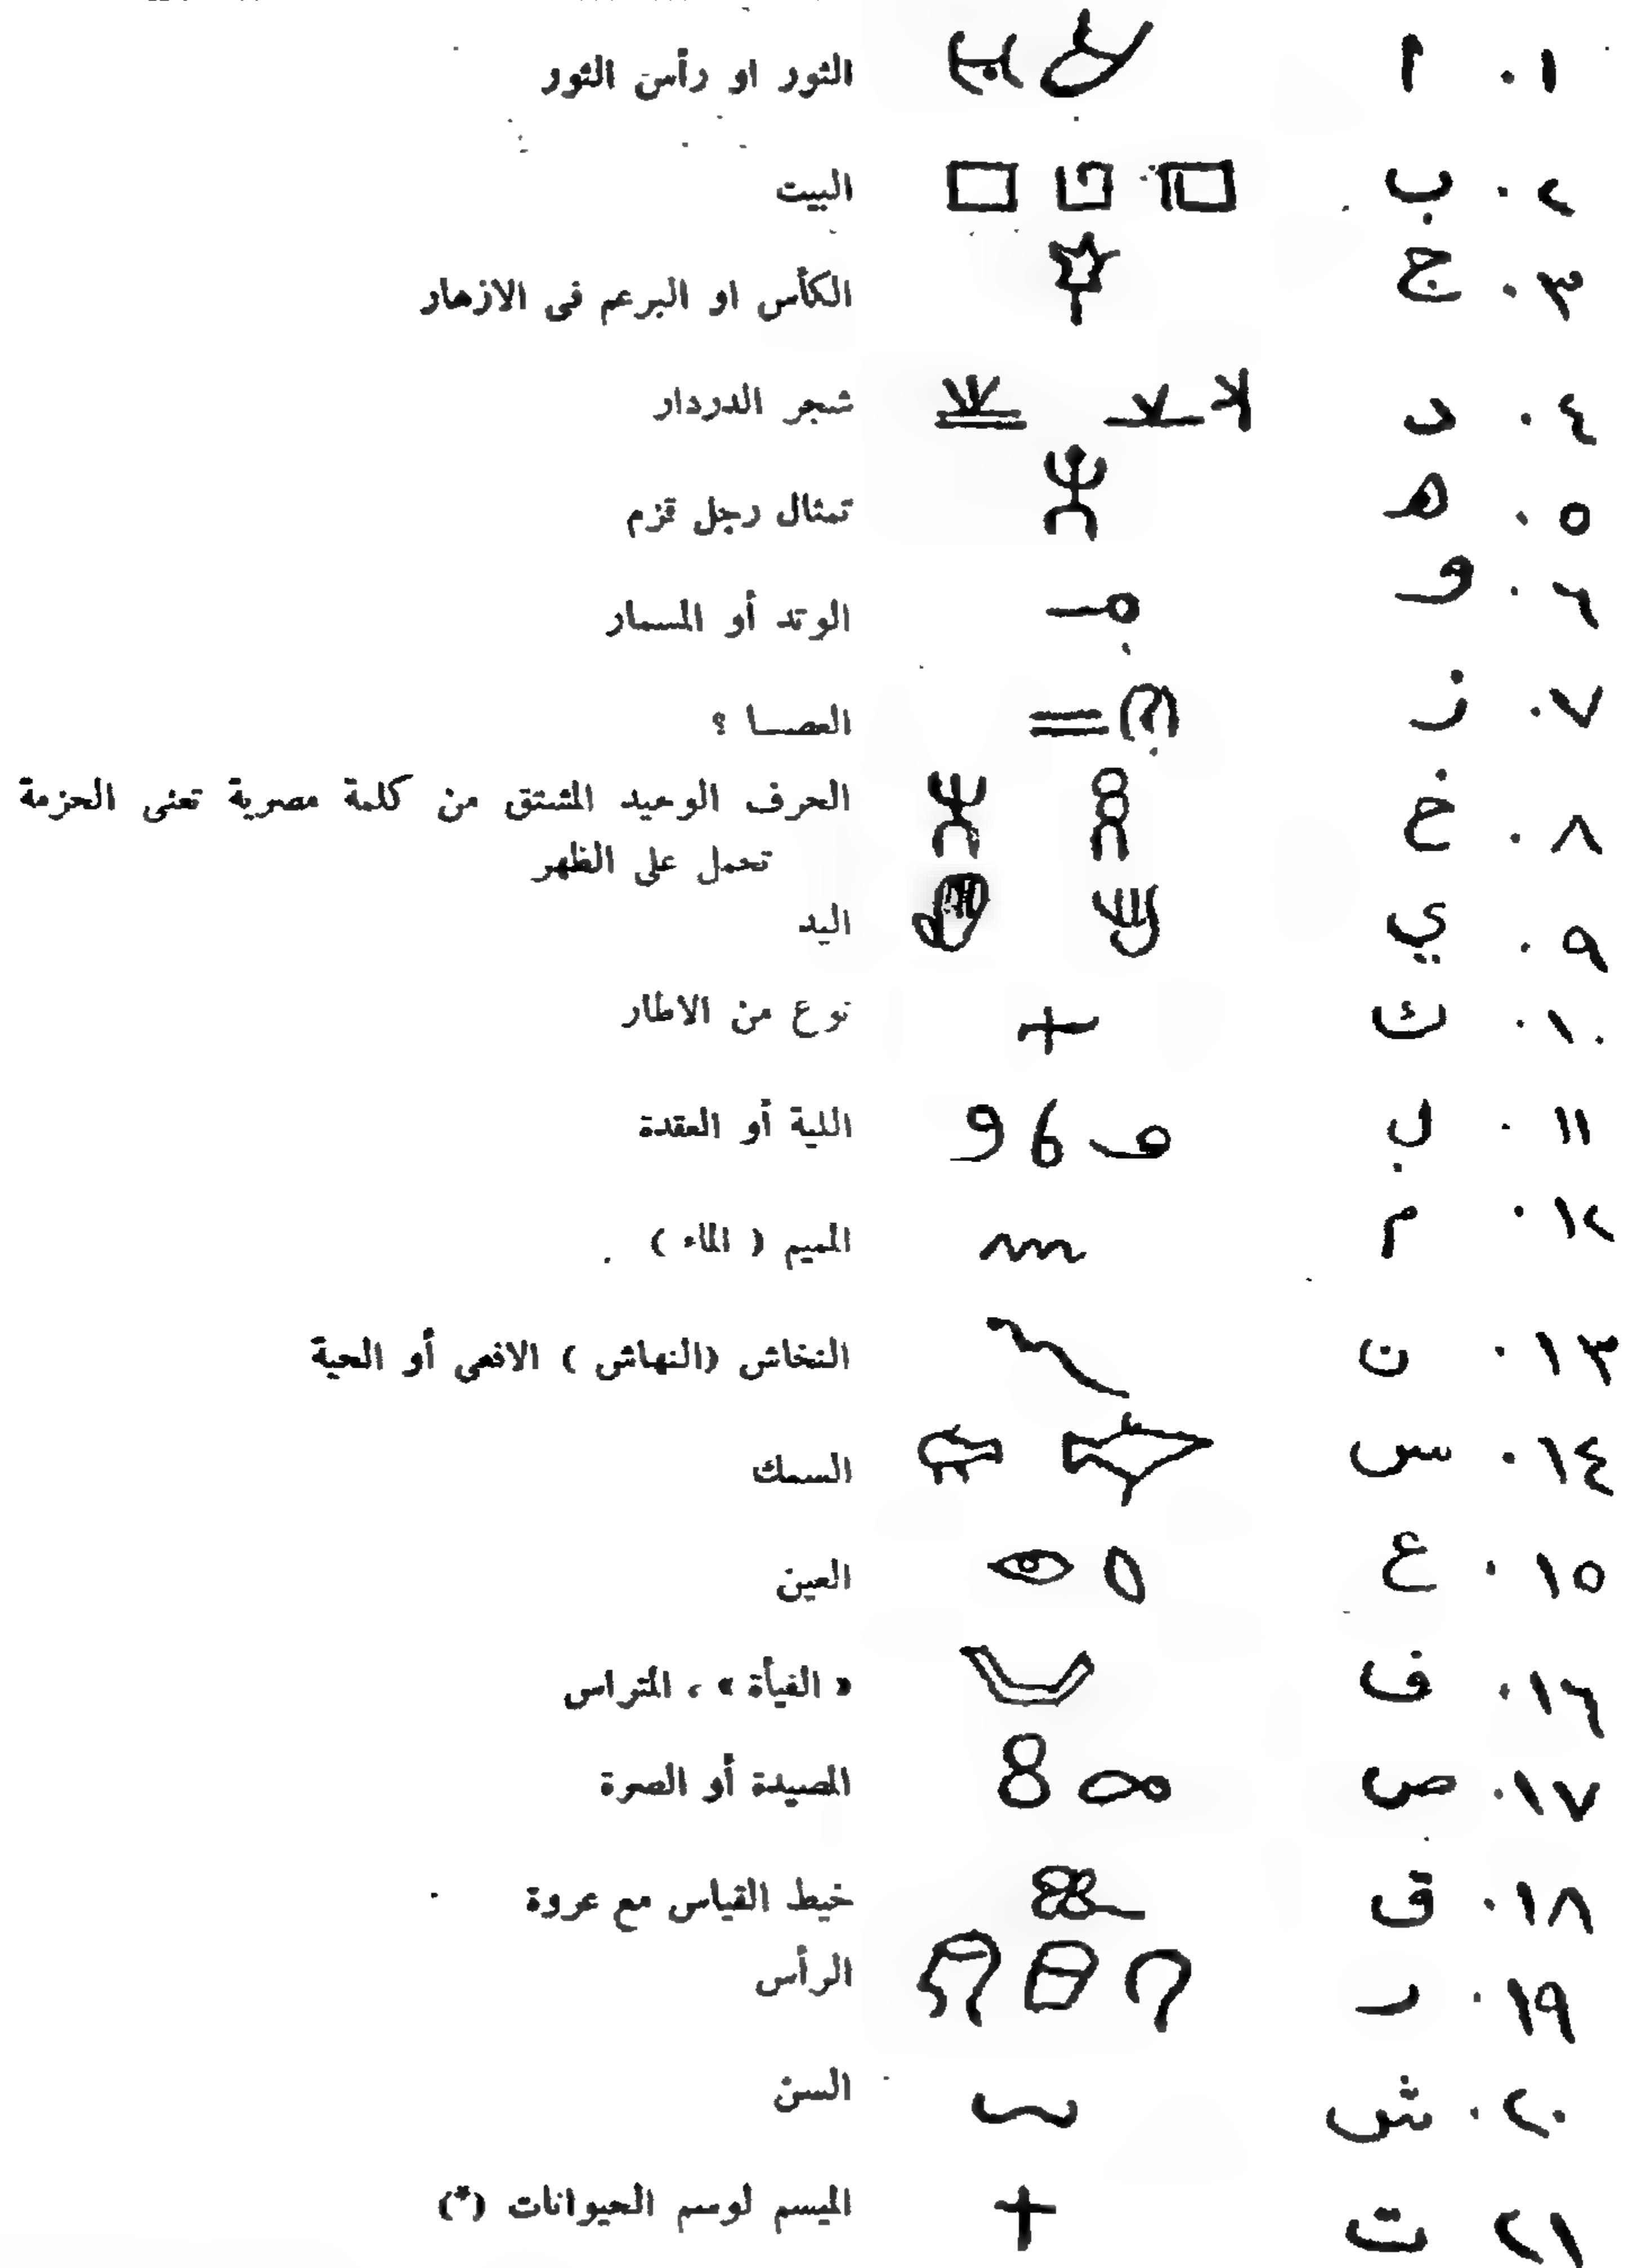 ١. أ الثور او رأس الثور
٢. ب البيت
٣. ج الكأس او البرعم فى الازهار
٤. د شجر الدردار
٥. هـ تمثال رجل قزم
٦. و الوتد أو المسمار
٧. ز العصا ؟
٨. خ الحرف الوحيد المشتق من كلمة مصرية تعنى الحزمة
تحمل على الظهر
٩. ي اليد
١٠. ك نوع من الاطار
١١. ل اللية أو العقدة
١٢. م الميم ( الماء )
١٣. ن النخاش (النهاش ) الافعى أو الحية
١٤. س السمك
١٥. ع العين
١٦. ف « الفيأة » ، المتراس
١٧. ص المصيدة أو الصرة
١٨. ق خيط القياس مع عروة
١٩. ر الرأس
٢٠. ش السن
٢١ ت الميسم لوسم الحيوانات (*)